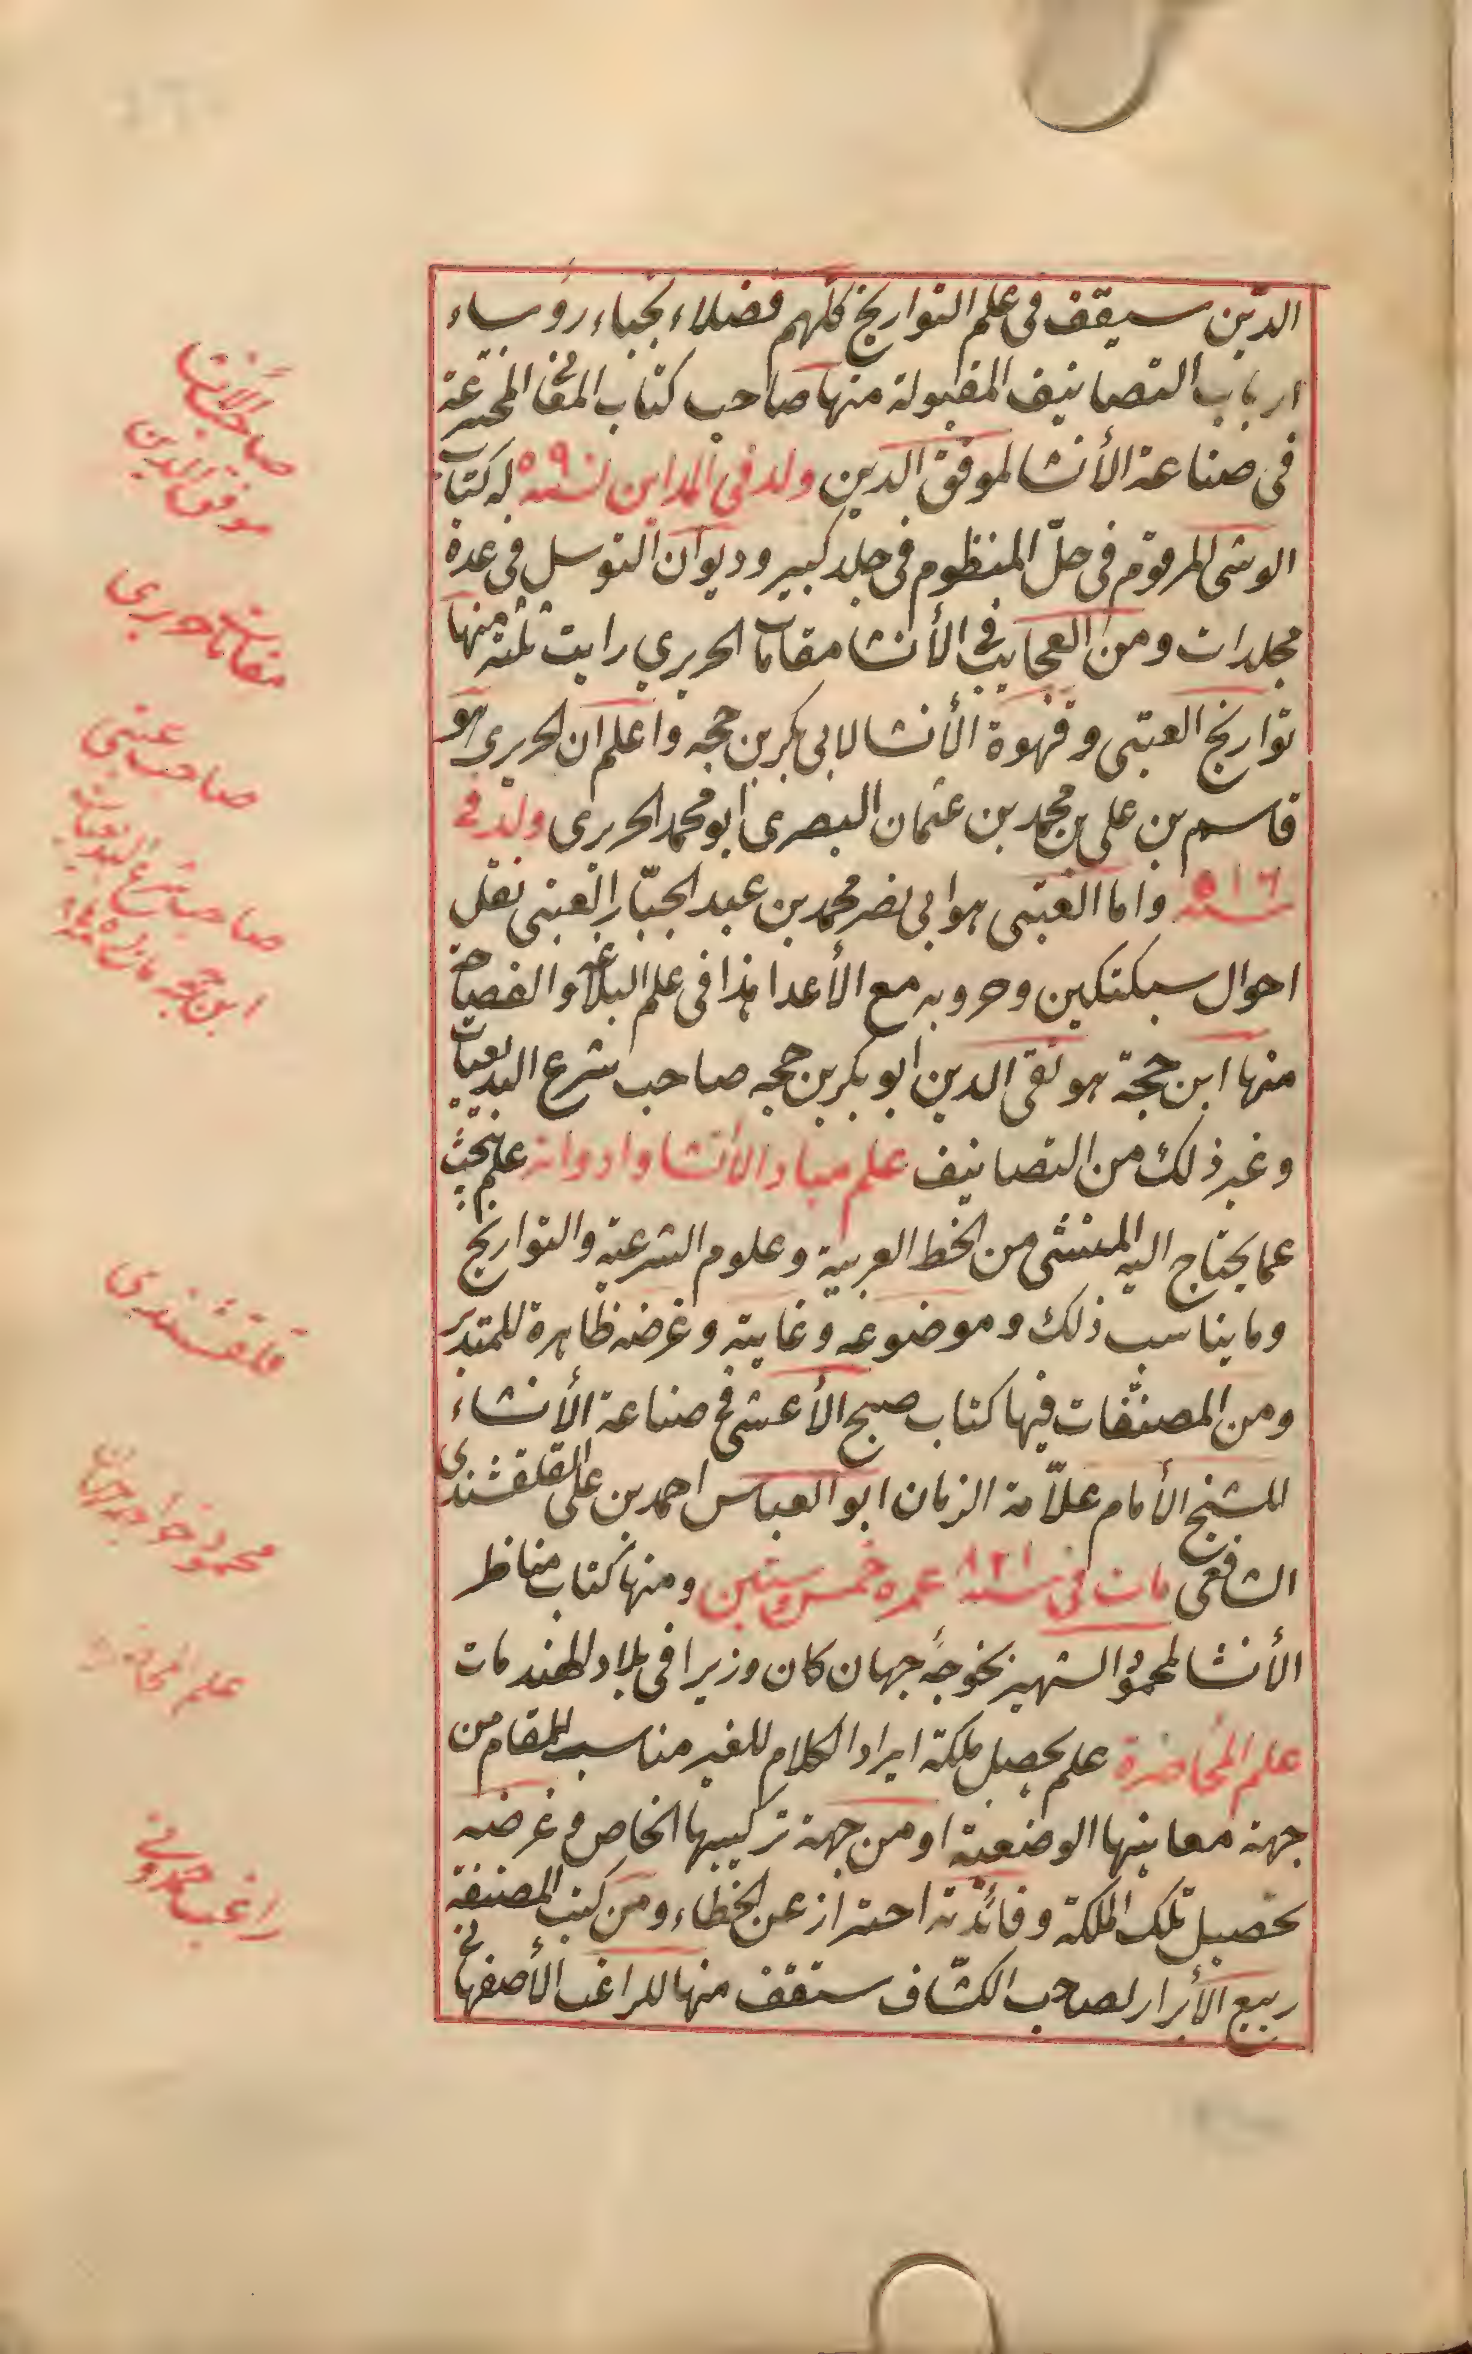 الدّين سيقف فى علم التواريخ كلّهم فضلاء نجباء رؤساء
ارباب التصانيف المقبولة منها صاحب كتاب المعانى المخترعة
فى صناعة الأنشا لموفق الدين ولد فى المداين سنة ٥٩٠ له كتاب
الوشى المرقوم فى حلّ المنظوم فى جلد كبير وديوان التوسل فى عدة
مجلدات ومن العجايب فى الأنشا مقامات الحريري رايت ثلثة منها
تواريخ العتبى وقهوة الأنشا لابى بكر بن حجه واعلم ان الحريرى هو
قاسم بن على بن محمد بن عثمان البصرى ابو محمد الحريرى ولد فى
سنة ٥١٦ واما العتبى هو ابى نصر محمد بن عبد الجبّار العتبى نقل
احوال سبكتكين وحروبه مع الأعدا هذا فى علم البلاغة والفصاحة
منها ابن حجة هو تقى الدين ابو بكر بن حجه صاحب شرع البديعيات
وغير ذلك من التصانيف علم مباد الأنشا وادواته علم يبحث
عما يحتاج اليه المنشى من الخط العربية وعلوم الشرعية والتواريخ
وما يناسب ذلك وموضوعه وغايته وغرضه ظاهرة للمتدبر
ومن المصنّفات فيها كتاب صبح الأعشى فى صناعة الأنشاء
للشيخ الأمام علاّمة الزمان ابو العباس احمد بن على القلقشندى
الشافعى مات فى سنة ٨٢١ عمره خمس وستين ومنها كتاب مناظر
الأنشا لمحمود الشهير بخوجه جهان كان وزيرا فى بلاد الهند مات
علم المحاضرة علم يحصل ملكة ايراد الكلام للغير مناسب للمقام من
جهة معانيها الوضعية او من جهة تركيبها الخاص و غرضه
تحصيل تلك الملكة وفائدته احتراز عن الخطاء ومن كتب المصنفة
ربيع الأبرار لصاحب الكشّاف ستقف منها للراغب الأصفهانى
موفق الدين
مقامات حريرى
صاحب عتبى
صاحب شرع البديعيات
ابن حجه مات
قلقشندى
محمود خواجه جهان
علم المحاضره